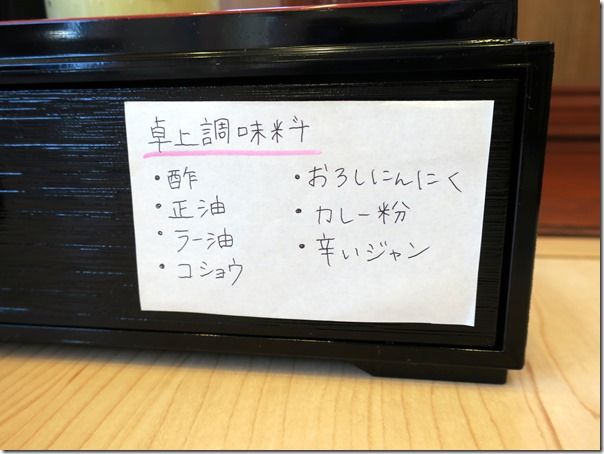 卓上調味料
・酢
・正油
・ラー油
・コショウ
・おろしにんにく
・カレー粉
・辛いジャン